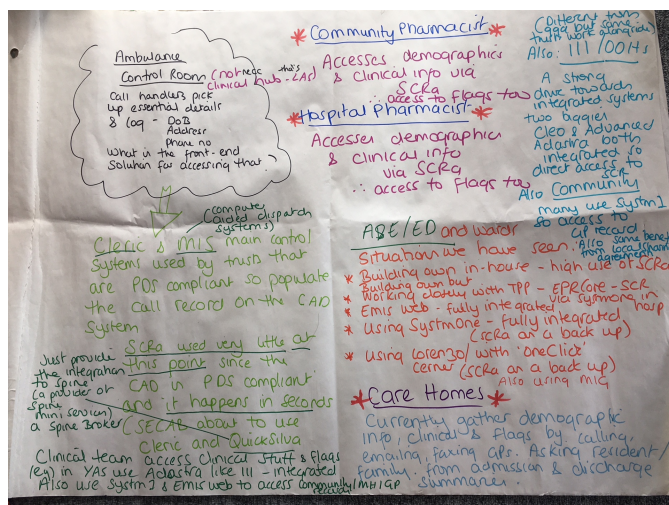 Ambulance
Control Room (not nec that's
clinical hub - LAS)
Call handlers pick
up essential details
& log - DoB
Address
Phone no
What is the front-end
solution for accessing that?
(computer
aided dispatch
systems)
Cleric & MIS main control
systems used by trusts that
are PDS compliant so populate
the call record on the CAD
system
SCRa used very little at
this point since the
CAD is PDS compliant
and it happens in seconds
(SECAB about to use
Cleric and QuickSilva
Just provide
the integration
to spine
(a provider of
spine
mini services)
a spine Broker
Clinical team access Clinical stuff & flags
(eg) in YAS use Adastra like 111 - integrated
Also use Systm1 & Emis web to access community/MH/GP
records
*Community Pharmacist*
Accesses demographics
& Clinical info via
SCRa
∴ access to Flags too
*Hospital Pharmacist*
Accesses demographics
& clinical info
via SCRa
∴ access to Flags too
(Different from
999 but some
trusts work alongside)
Also: 111/OOHs
A strong
drive towards
integrated systems
two biggies
Cleo & Advanced
Adastra both
integrated so
direct access to
SCR
Also Community
many use Systm1
so access to
GP record.
Also same benefit
from local sharing
agreement
A&E/ED and wards
Situations we have seen:
* Building own in-house - high use of SCRa
* Building own but
Working closely with TPP - EPRCore - SCR
via systmone in
hosp
* Emis web - fully integrated
* Using SystmOne - fully integrated
(SCRa as a back up)
* Using Lorenzo/ with 'oneClick'
Cerner (SCRa as a back up)
Also using MIG
*Care Homes*
Currently gather demographic
info, clinical & flags by calling,
emailing, faxing GPs. Asking resident/
family. From admission & discharge
summaries.